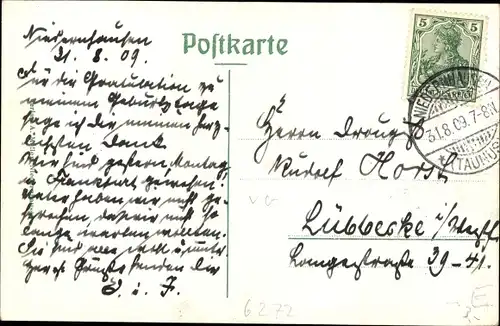 Postkarte
Niedernhausen
31. 8. 09.
Für die Gratulation zu
meinem Geburtstage
sage ich dir meinen herz-
lichsten Dank.
Wir sind gestern Montag
in Frankfurt gewesen.
Vater haben wir nicht ge-
sprochen, da wir nicht so
lange warten wollten.
Sie sind alle wohl u. munter.
Grüße senden dir
J. u. F.
5 5
NIEDERNHAUSEN
31.8.09. 7-8
(TAUNUS)
Herrn Drog.
Rudolf Horst
Lübbecke i/Westf.
Langestraße 39-41.
VG
6272